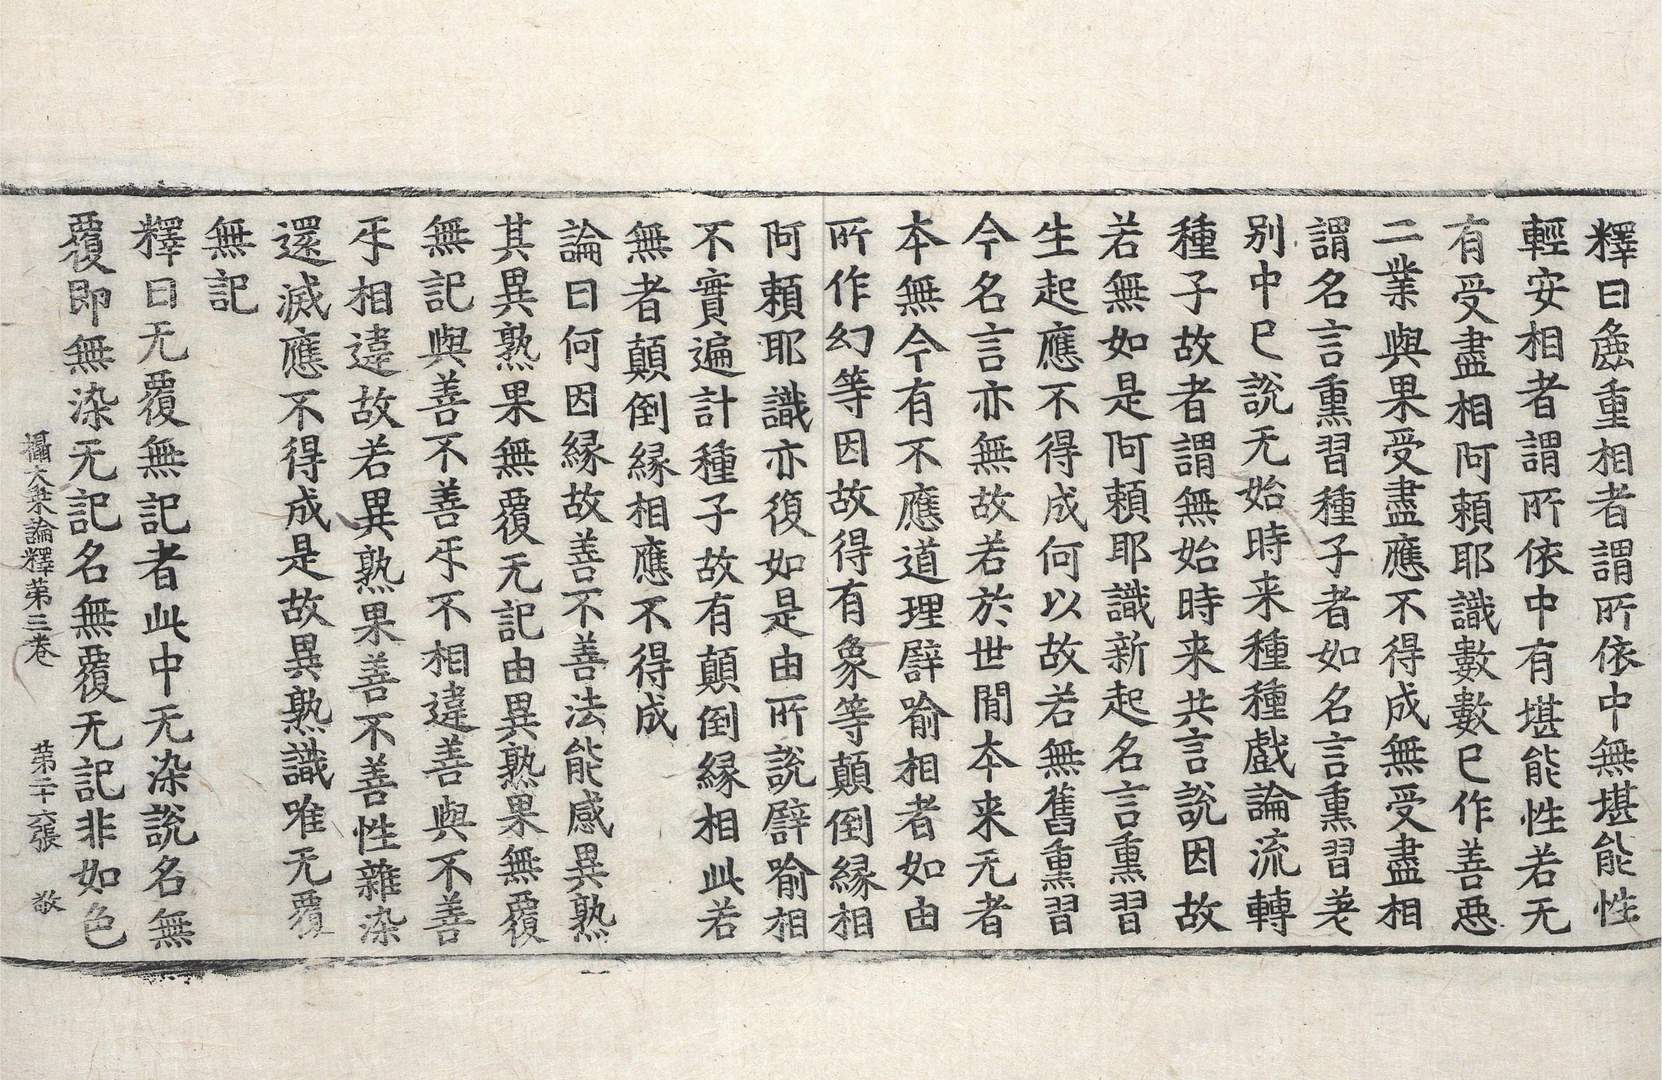 釋曰麁重相者謂所依中無堪能性
輕安相者謂所依中有堪能性若无
有受盡相阿賴耶識數數已作善惡
二業與果受盡應不得成無受盡相
謂名言熏習種子者如名言熏習差
别中已說无始時来種種戲論流轉
種子故者謂無始時来共言說因故
若無如是阿賴耶識新起名言熏習
生起應不得成何以故若無舊熏習
今名言亦無故若於世間本来无者
本無今有不應道理譬喻相者如由
所作幻等因故得有象等顛倒緣相
阿賴耶識亦復如是由所說譬喻相
不實遍計種子故有顛倒緣相此若
無者顛倒緣相應不得成
論曰何因緣故善不善法能感異熟
其異熟果無覆无記由異熟果無覆
無記與善不善㸦不相違善與不善
㸦相違故若異熟果善不善性雜染
還滅應不得成是故異熟識唯无覆
無記
釋曰无覆無記者此中无染說名無
覆即無染无記名無覆无記非如色
攝大乘論釋第三卷 第二十六張 敬